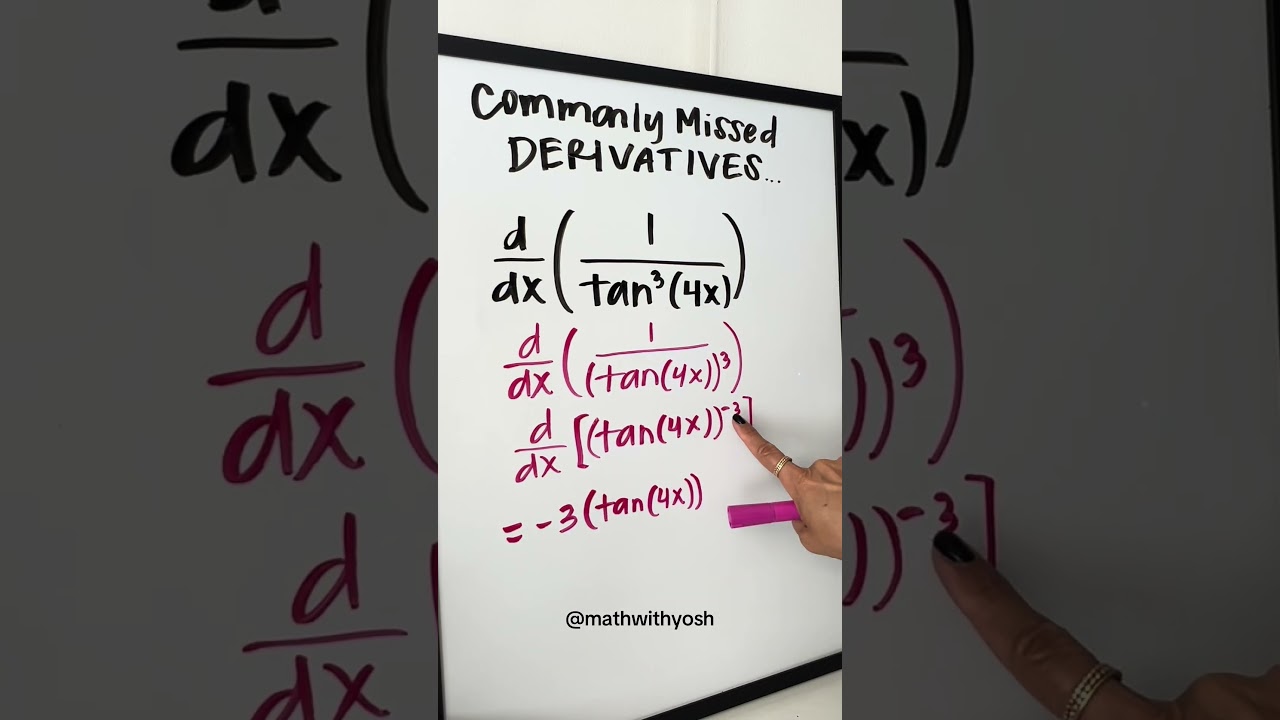 Commonly Missed
DERIVATIVES...
d/dx ( 1 / tan³(4x) )
d/dx ( 1 / (tan(4x))³ )
d/dx [(tan(4x))⁻³]
= -3(tan(4x))
@mathwithyosh